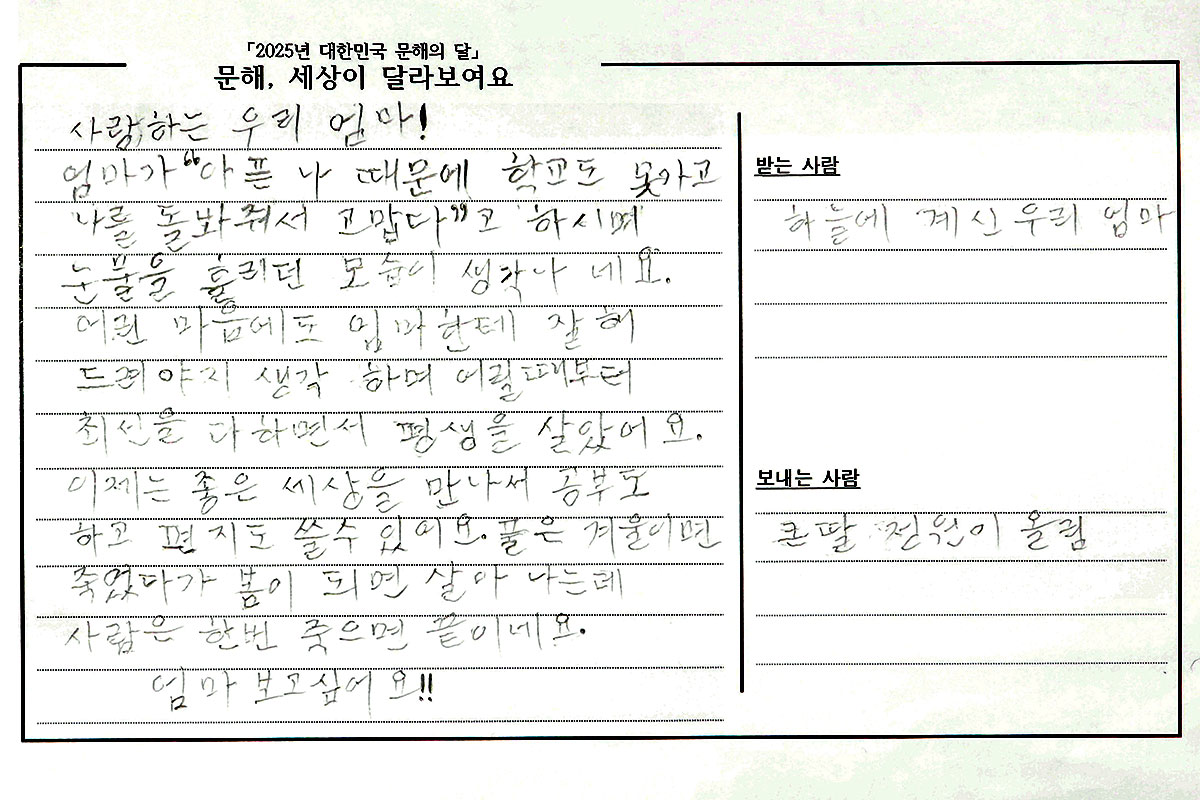 「2025년 대한민국 문해의 달」
문해, 세상이 달라보여요
사랑하는 우리 엄마!
엄마가 "아픈 나 때문에 학교도 못가고
나를 돌봐줘서 고맙다"고 하시며
눈물을 흘리던 모습이 생각나 네요.
어린 마음에도 엄마한테 잘해
드려야지 생각 하며 어릴때부터
최선을 다하면서 평생을 살았어요.
이제는 좋은 세상을 만나서 공부도
하고 편지도 쓸수 있어요. 풀은 겨울이면
죽었다가 봄이 되면 살아 나는데
사람은 한번 죽으면 끝이네요.
엄마 보고싶어요!!
받는 사람
하늘에 계신 우리 엄마
보내는 사람
큰딸 정원이 올림